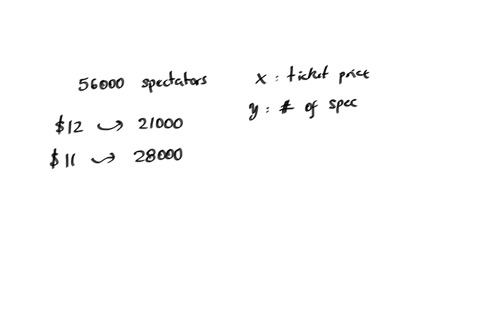 56000 spectators
$12 → 21000
$11 → 28000
x : ticket price
y : # of spec